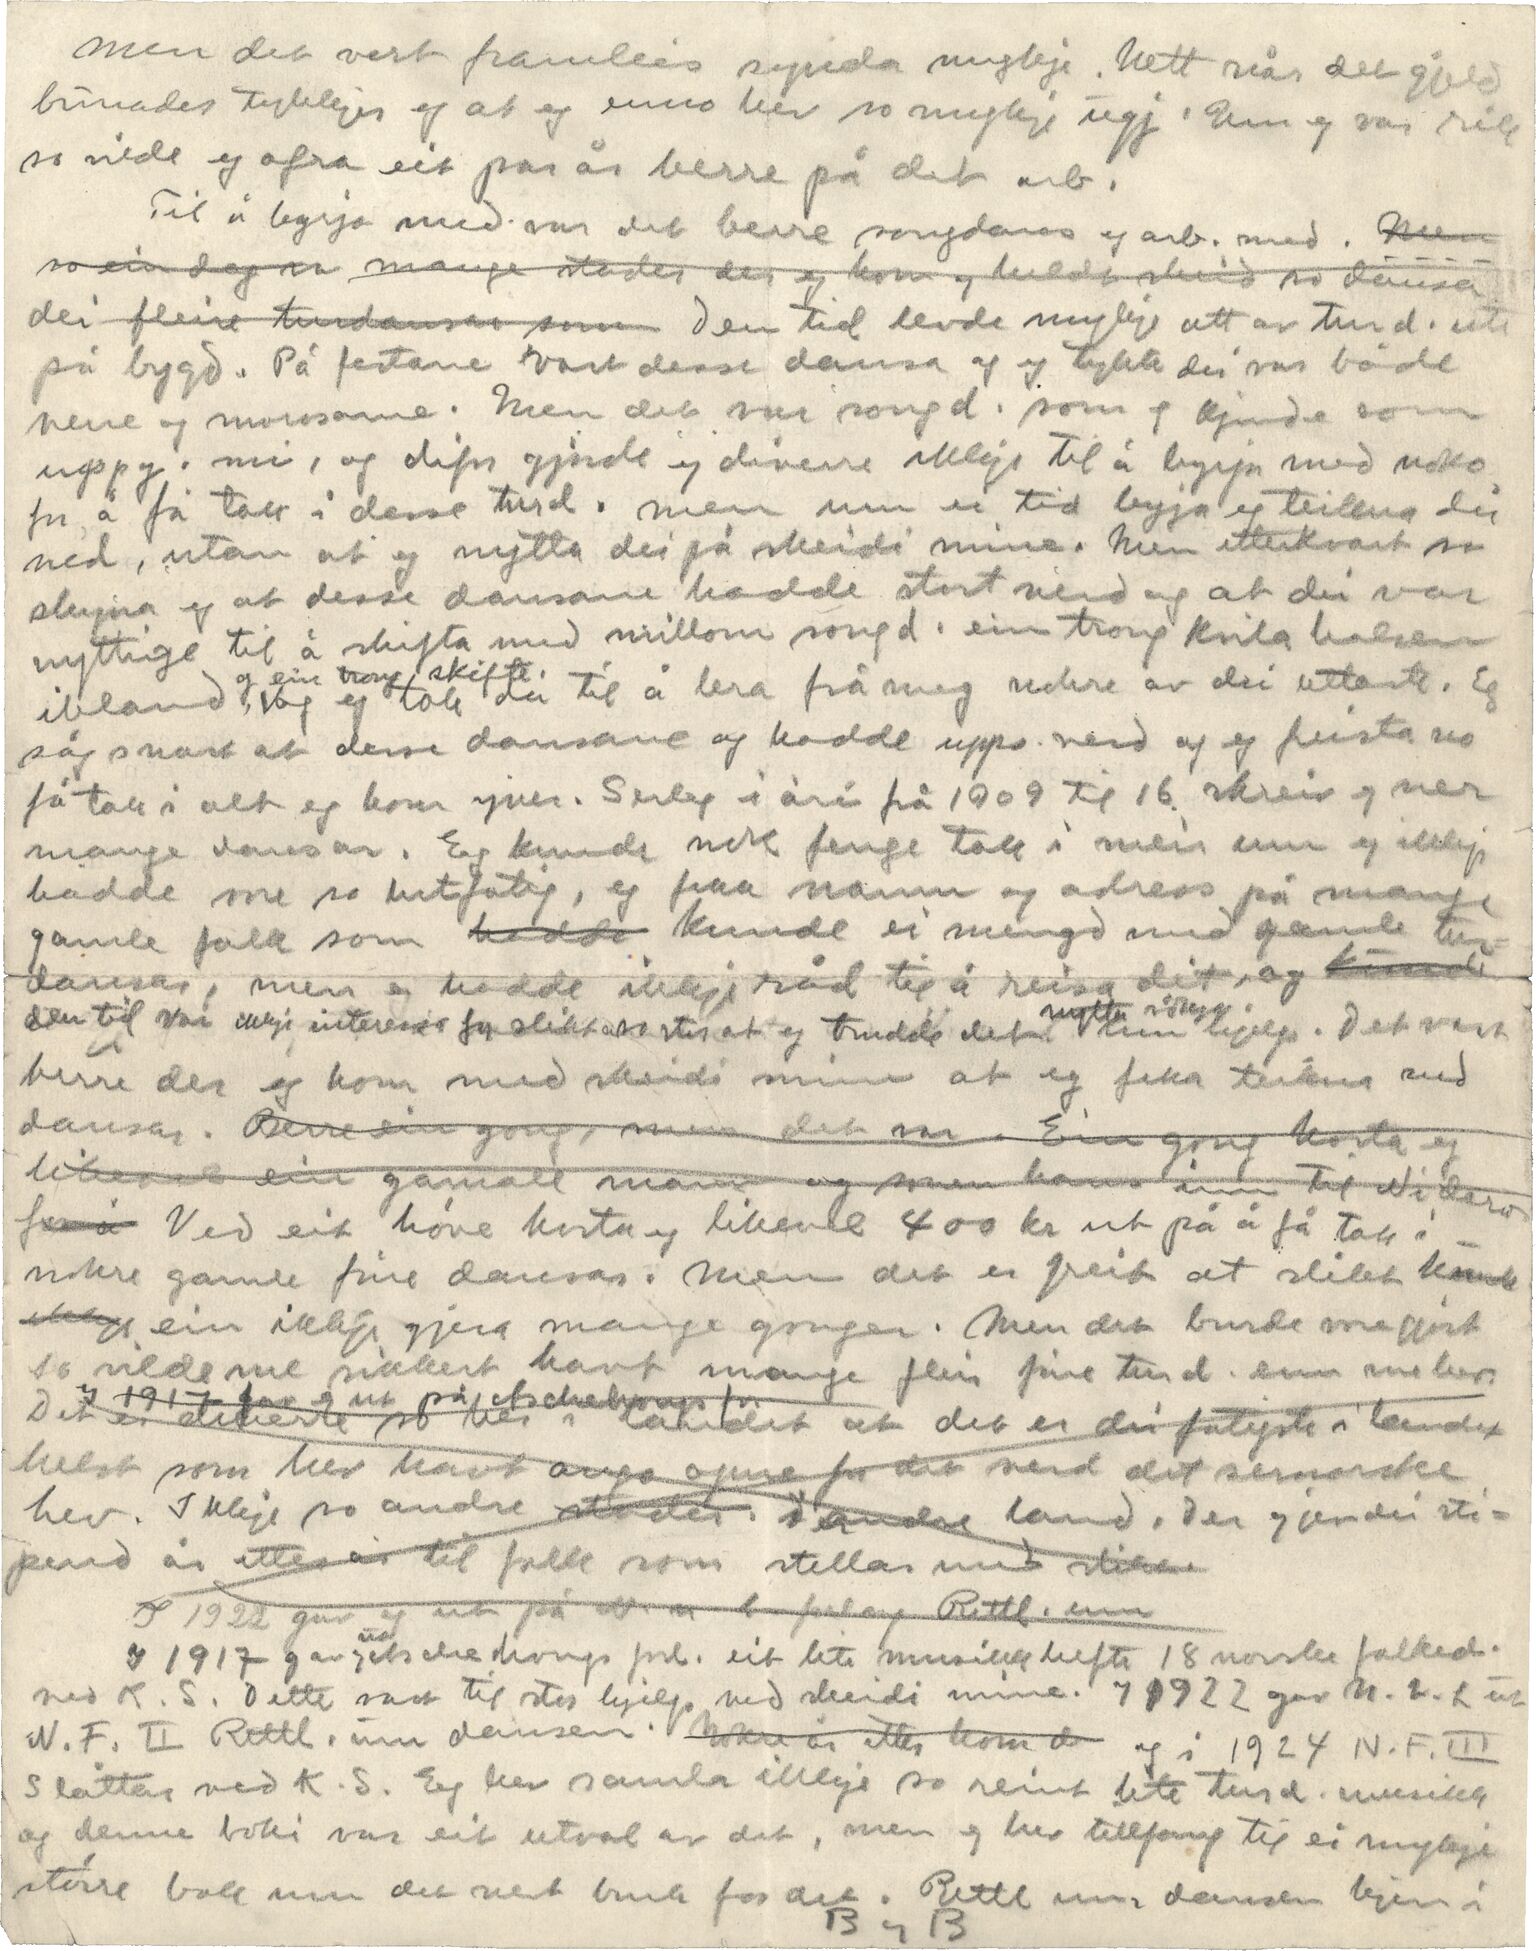 Men det vert framleis synda mykje. Nett når det gjeld
bunader tykkjer eg at eg enno hev so mykje ugj. Um eg var rik
so vilde eg ofra eit par år berre på det arb.
Til å byrja med var det berre songdans eg arb. med. Men
so ein dag mange stader der eg kom og heldt skeid so dansa
dei fleire turdansar som Den tid levde mykje att av turd. ute
på bygd. På festane vart desse dansa og eg tykte dei var både
vene og morosame. Men det var songd. som eg kjende som
uppg. mi, og difor gjorde eg diverre ikkje til å byrja med noko
for å få tak i desse turd. men um ei tid byrja eg teikna dei
ned, utan at eg nytta dei på skeidi mine. Men etterkvart so
skyna eg at desse dansane hadde stort verd og at dei var
nyttige til å skifta med millom songd. ein trong kvila halsen
og ein trong skifte
ibland, og eg tok dei til å lera frå meg nokre av dei utturte. Eg
såg snart at desse dansane og hadde upps. verd og eg freista no
få tak i alt eg kom yver. Serleg i åri frå 1909 til 16 skreiv eg ner
mange dansar. Eg kunde nok fenge tak i meir um eg ikkje
hadde vore so lutfatig, eg fekk namn og adress på mange
gamle folk som hadde kunde ei mengd med gamle tur-
dansar, men eg hadde ikkje råd til å reisa dit, og kunde
den tid var ikkje interessa for slikt so stor at eg trudde det nytta søkja um hjelp. Det vart
berre der eg kom med skeidi mine at eg fekk teikna ned
dansar. Berre ein gong, men det var. Ein gong kosta eg
likevel ein gamall mann og sonen hans inn til Nidaros
for å Ved eit høve kosta eg likevel 400 kr ut på å få tak i
nokre gamle fine dansar. Men det er greit at slikt kunde
ikkje ein ikkje gjera mange gonger. Men det burde vore gjort
so vilde me sikkert havt mange fleir fine turd. enn me hev.
I 1917 gav eg ut på Aschehougs for
Det er diverre so her i landet at det er dei fatigste i landet
helst som hev havt auga opne for det verd det sernorske
hev. Ikkje so andre stader. I andre land. Der gjev dei sti-
pend år etter år til folk som stellar med slikt
I 1922 gav eg ut på N. u. l. forlag Rettl. um
I 1917 gav eg ut Aschehougs forl. eit lite musikkhefte 18 norske folked.
ved K. S. Dette vart til stor hjelp ved skeidi mine. I 1922 gav N. U. L ut
N. F. II Rettl. um dansen. Nokre år etter kom d og i 1924 N. F. III
Slåttar ved K. S. Eg hev samla ikkje so reint lite turd. musikk
og denne boki var eit utval av det, men eg hev tilfang til ei mykje
større bok um det vert bruk for det. Rettl um dansen kjem i
B og B